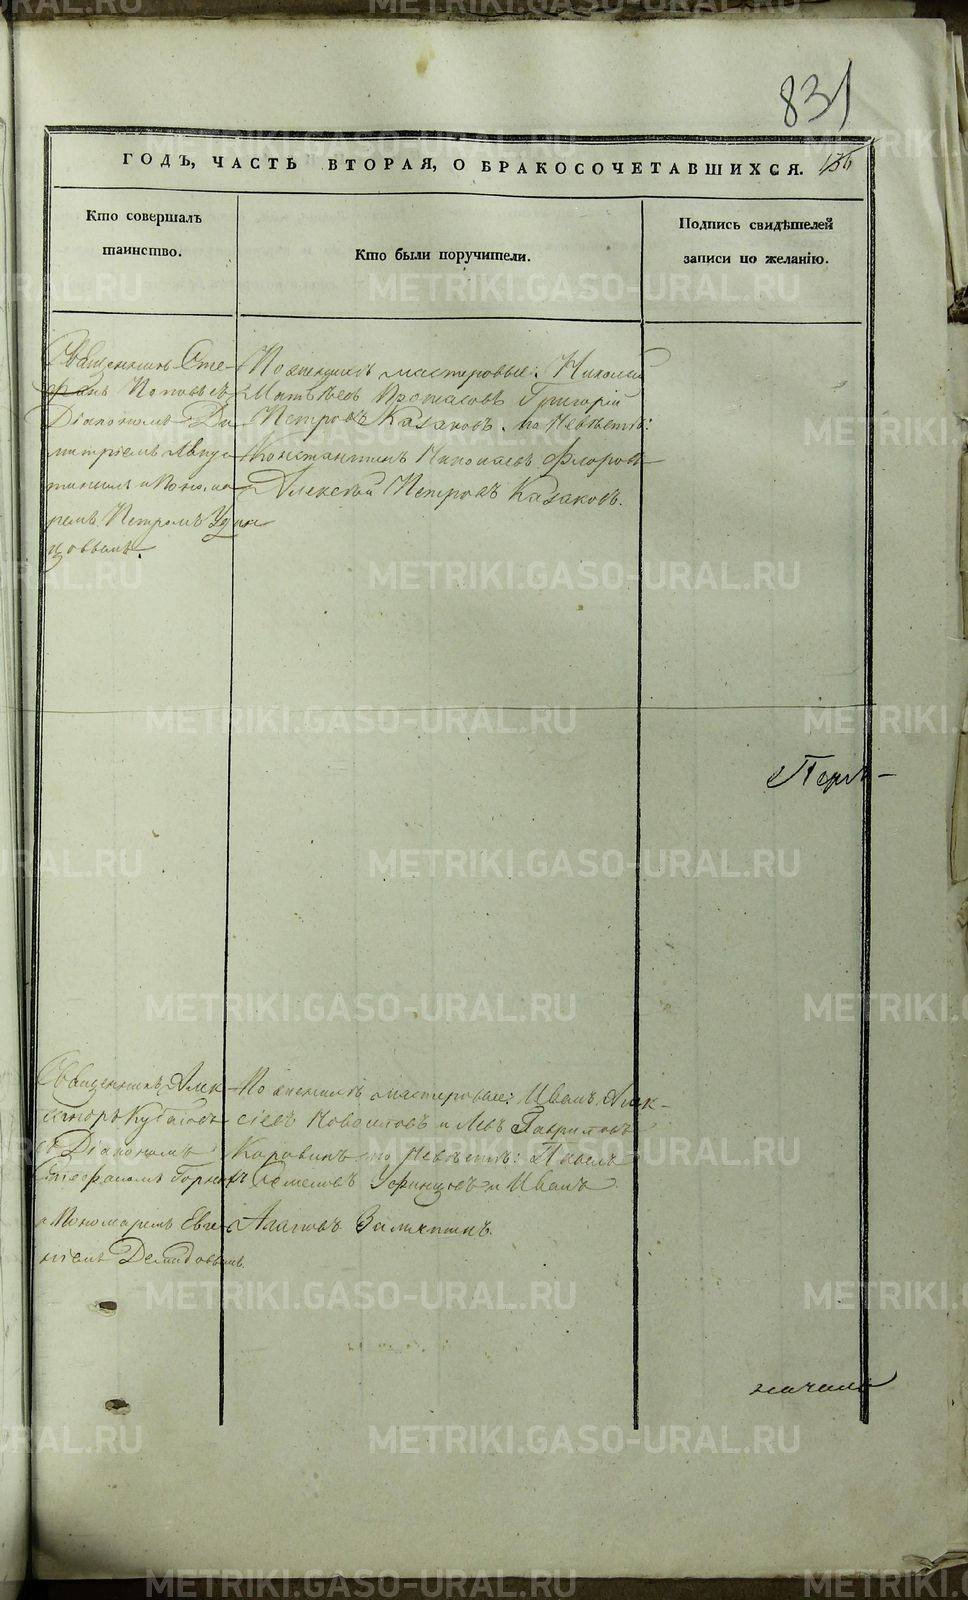 831
ГОДЪ, ЧАСТЬ ВТОРАЯ, О БРАКОСОЧЕТАВШИХСЯ.
Кто совершалъ
таинство.
Кто были поручители.
Подпись свидѣтелей
записи по желанію.
Священникъ Сте-
фанъ Поповъ съ
Діакономъ Ди-
митріемъ
и Поно,ма-
ремъ Петромъ Удин
цовымъ.
По женихѣ мастеровые: Николай
Матвѣевъ Протасовъ Григорій
Петровъ Казаковъ. по Невѣстѣ:
Константинъ Николаевъ Флоровъ
Алексѣй Петровъ Казаковъ.
Священникъ Алек
сандръ
съ Діакономъ
Стефаномъ
и Пономаремъ Евге
ніемъ Демидовымъ.
По женихѣ мастеровые: Иванъ Алек-
сѣевъ и Левъ Гавриловъ
Коровинъ по Невѣстѣ: Павелъ
и Иванъ
METRIKI.GASO-URAL.RU